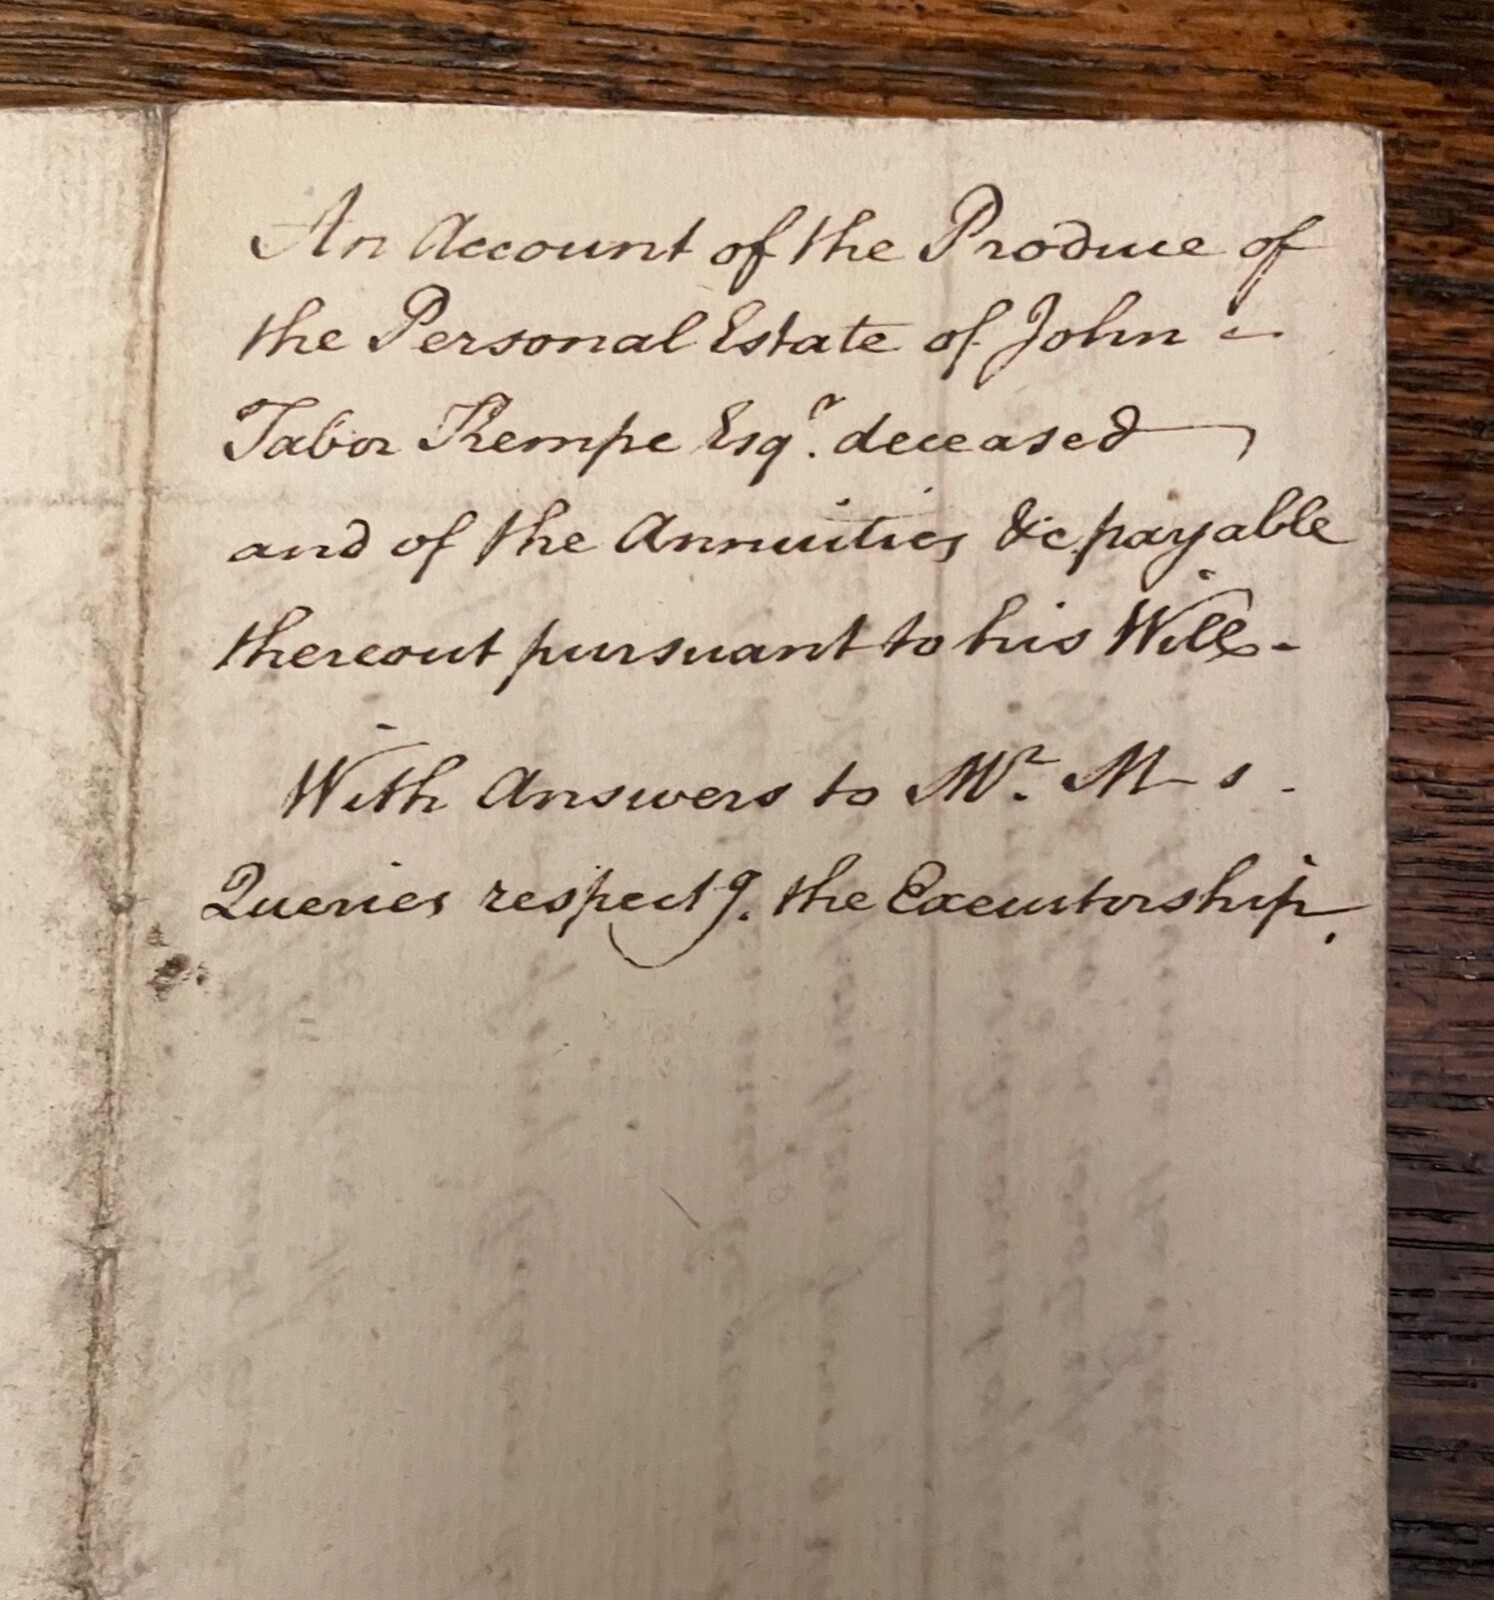 An Account of the Produce of
the Personal Estate of John -
Tabor Kempe Esqr. deceased
and of the Annuities &c payable
thereout pursuant to his Will -
With Answers to Mr. M— s -
Queries respectg. the Executorship.